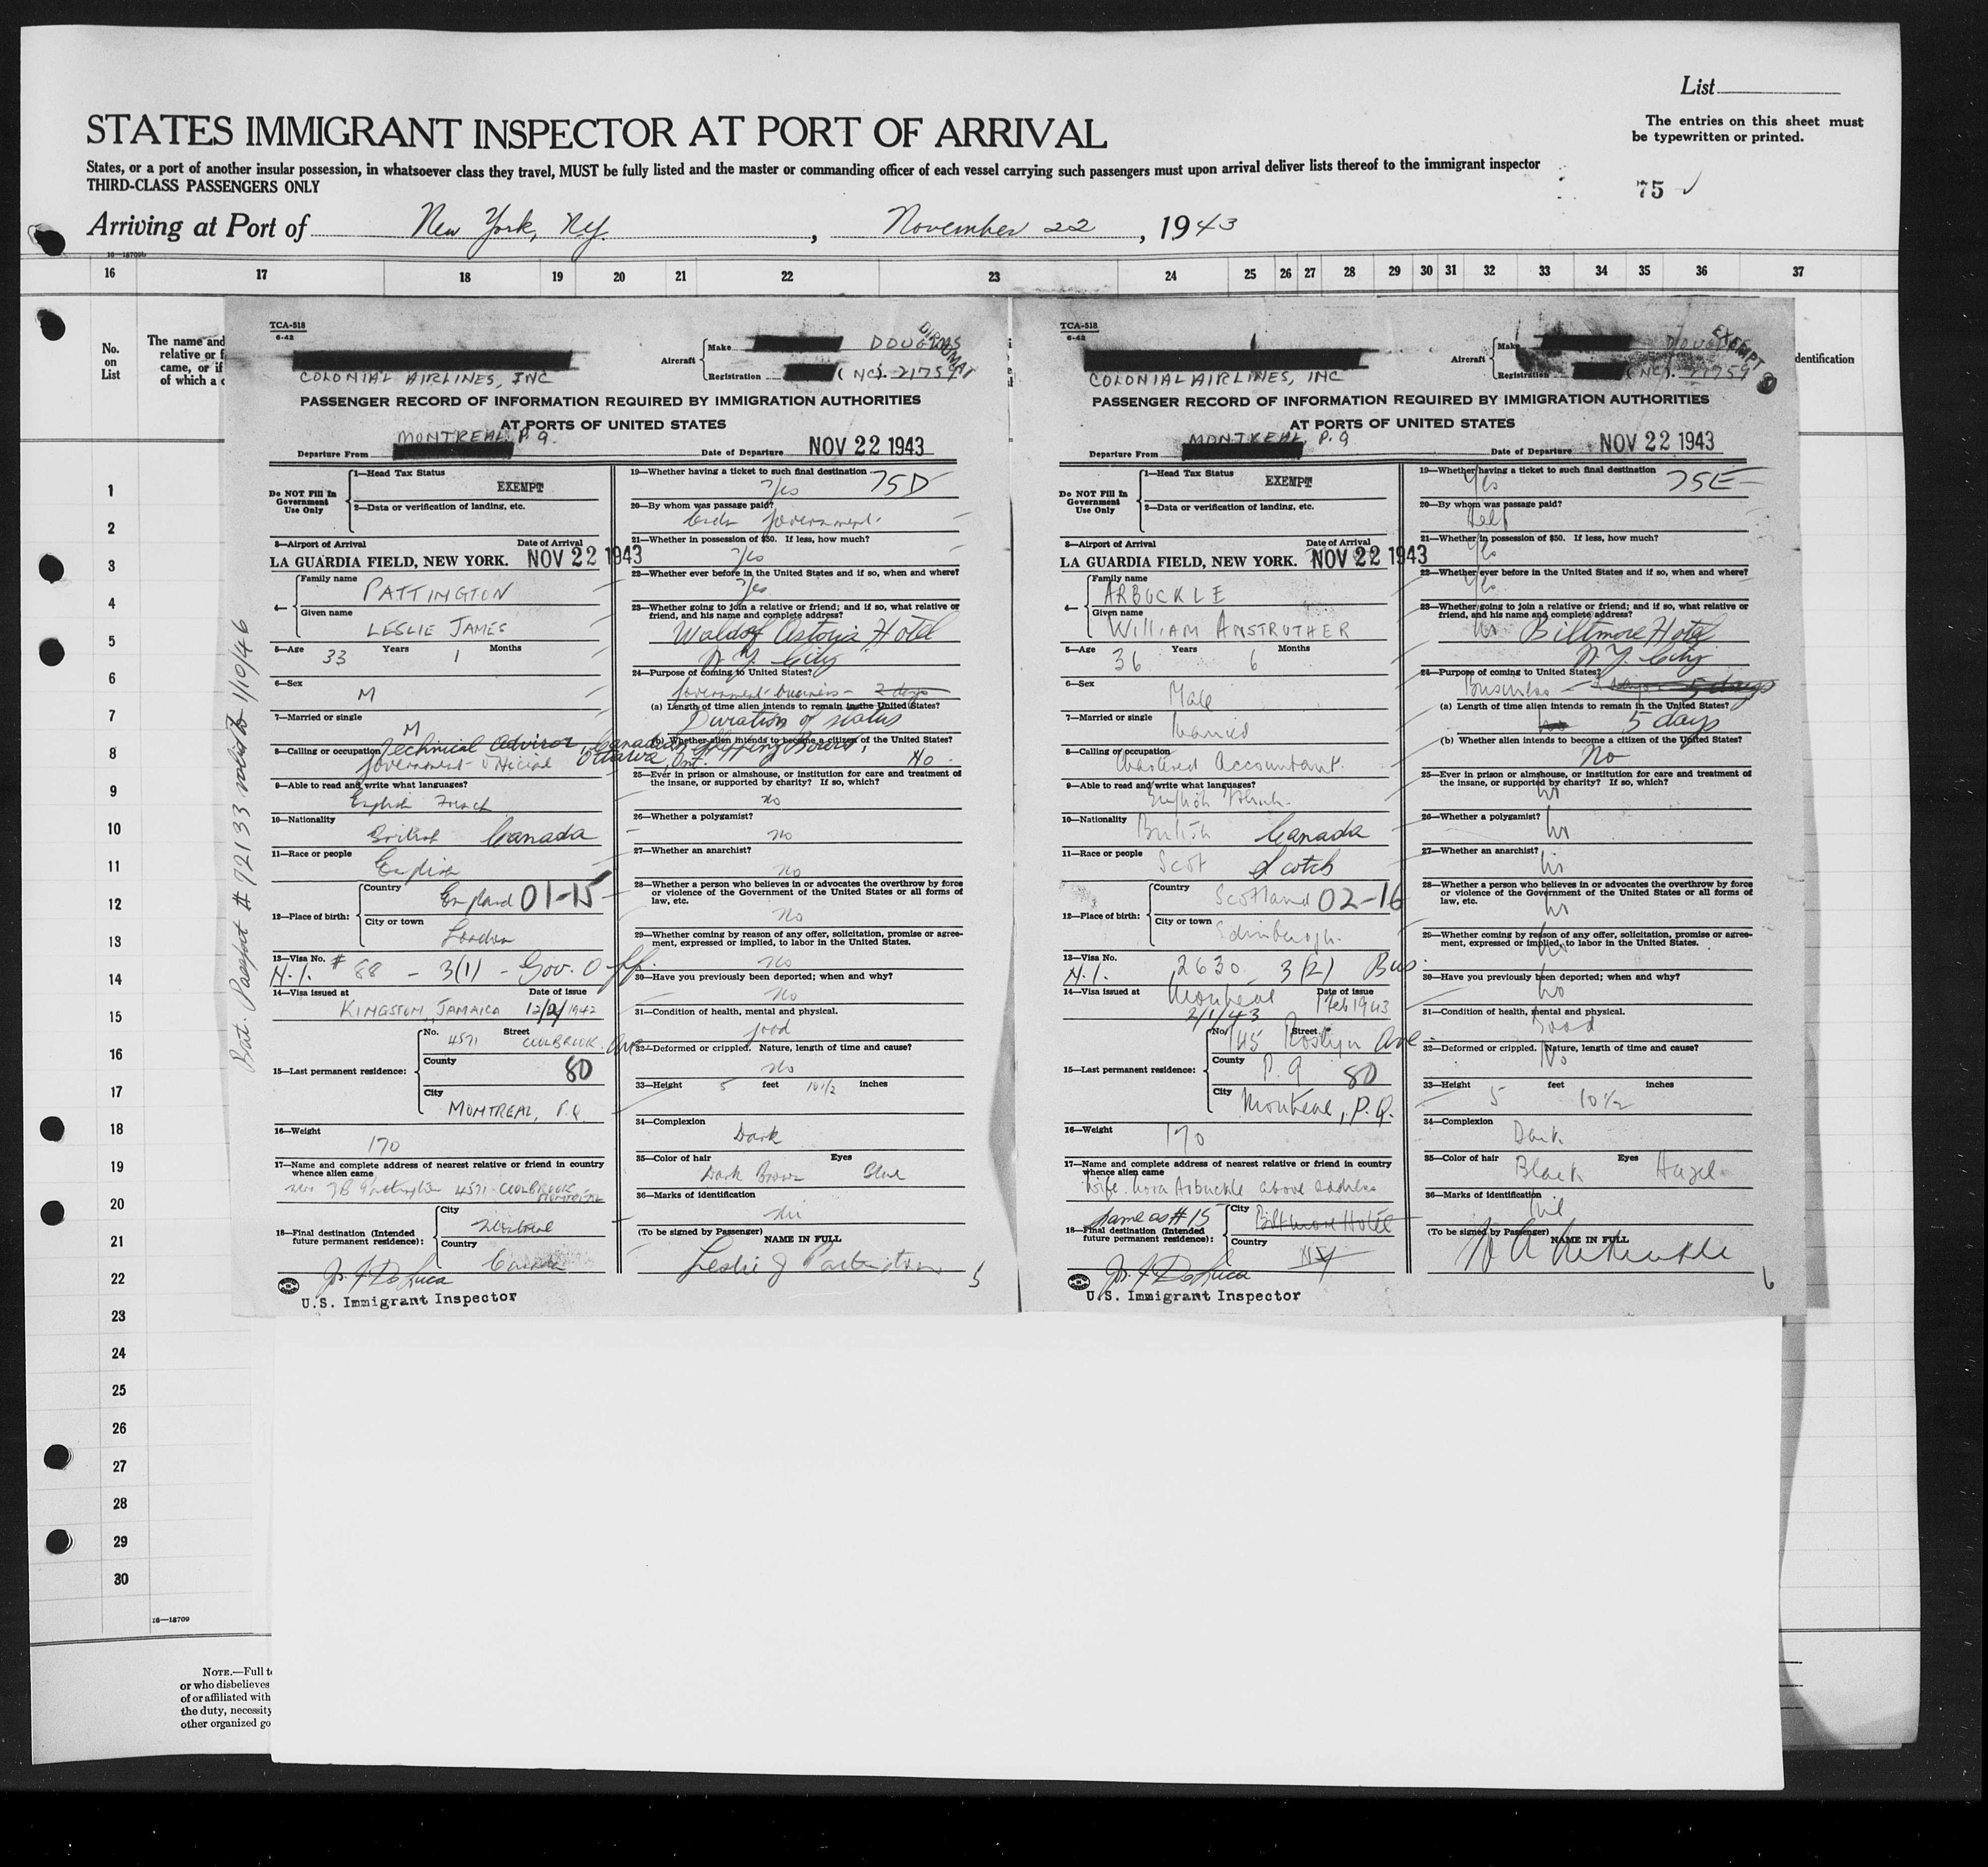 List
STATES IMMIGRANT INSPECTOR AT PORT OF ARRIVAL
The entries on this sheet must
be typewritten or printed.
States, or a port of another insular possession, in whatsoever class they travel, MUST be fully listed and the master or commanding officer of each vessel carrying such passengers must upon arrival deliver lists thereof to the immigrant inspector
THIRD-CLASS PASSENGERS ONLY
75
Arriving at Port of New York, N.Y. , November 22 , 1943
16 17 18 19 20 21 22 23 24 25 26 27 28 29 30 31 32 33 34 35 36 37
No.
on
List
The name and
relative or f
came, or if
of which a c
dentification
1
2
3
4
5
6
7
8
9
10
11
12
13
14
15
16
17
18
19
20
21
22
23
24
25
26
27
28
29
30
16—18709
NOTE.—Full t
or who disbelieves
of or affiliated with
the duty, necessity
other organized go
Brit. Passport # 72133 valid to 1/10/46
TCA-518
6-42
COLONIAL AIRLINES, INC
Aircraft
Make DOUGLAS
Registration (NC). 21759
DIPLOMAT
PASSENGER RECORD OF INFORMATION REQUIRED BY IMMIGRATION AUTHORITIES
AT PORTS OF UNITED STATES
Departure From MONTREAL, P.Q.
Date of Departure NOV 22 1943
Do NOT Fill In
Government
Use Only
1—Head Tax Status
EXEMPT
2—Data or verification of landing, etc.
3—Airport of Arrival Date of Arrival
LA GUARDIA FIELD, NEW YORK. NOV 22 1943
4— Family name
PATTINGTON
Given name
LESLIE JAMES
5—Age 33 Years 1 Months
6—Sex
M
7—Married or single
M
8—Calling or occupation Technical Advisor, Canadian Shipping Board,
Government Official Ottawa, Ont.
9—Able to read and write what languages?
English French
10—Nationality
British Canada
11—Race or people
English
12—Place of birth:
Country
England 01-15
City or town
London
13—Visa No. # 88 – 3(1) – Gov. Off.
N.I.
14—Visa issued at Date of issue
KINGSTON, JAMAICA 12/2/1942
15—Last permanent residence:
No. 4571 Street COOLBROOK Ave
County 80
City
MONTREAL, P.Q.
16—Weight
170
17—Name and complete address of nearest relative or friend in country
whence alien came
4571 COOLBROOK
MONTREAL
18—Final destination (Intended
future permanent residence):
City
Montreal
Country
Canada
Jos. J. DeLuca
U.S. Immigrant Inspector
19—Whether having a ticket to such final destination
Yes 75D
20—By whom was passage paid?
Government.
21—Whether in possession of $50. If less, how much?
Yes
22—Whether ever before in the United States and if so, when and where?
Yes
23—Whether going to join a relative or friend; and if so, what relative or
friend, and his name and complete address?
Waldorf Astoria Hotel
N.Y. City
24—Purpose of coming to United States?
Government business – 2 days
(a) Length of time alien intends to remain in the United States?
Duration of status
(b) Whether alien intends to become a citizen of the United States?
No
25—Ever in prison or almshouse, or institution for care and treatment of
the insane, or supported by charity? If so, which?
no
26—Whether a polygamist?
no
27—Whether an anarchist?
no
28—Whether a person who believes in or advocates the overthrow by force
or violence of the Government of the United States or all forms of
law, etc.
no
29—Whether coming by reason of any offer, solicitation, promise or agree-
ment, expressed or implied, to labor in the United States.
no
30—Have you previously been deported; when and why?
no
31—Condition of health, mental and physical.
good
32—Deformed or crippled. Nature, length of time and cause?
no
33—Height 5 feet 10 1/2 inches
34—Complexion
Dark
35—Color of hair Eyes
Dark Brown Blue
36—Marks of identification
Nil
(To be signed by Passenger)
NAME IN FULL
Leslie J Partington
5
TCA-518
6-42
COLONIAL AIRLINES, INC
Aircraft
Make DOUGLAS
Registration (NC). 21759
EXEMPT
PASSENGER RECORD OF INFORMATION REQUIRED BY IMMIGRATION AUTHORITIES
AT PORTS OF UNITED STATES
Departure From MONTREAL, P.Q
Date of Departure NOV 22 1943
Do NOT Fill In
Government
Use Only
1—Head Tax Status
EXEMPT
2—Data or verification of landing, etc.
3—Airport of Arrival Date of Arrival
LA GUARDIA FIELD, NEW YORK. NOV 22 1943
4— Family name
ARBUCKLE
Given name
WILLIAM ANSTRUTHER
5—Age 36 Years 6 Months
6—Sex
Male
7—Married or single
Married
8—Calling or occupation
Chartered Accountant.
9—Able to read and write what languages?
English French
10—Nationality
British Canada
11—Race or people
Scot Scotch
12—Place of birth:
Country
Scotland 02-16
City or town
Edinburgh.
13—Visa No. 2630 3(2) Bus.
N.I.
14—Visa issued at Date of issue
Montreal 1 Feb 1943
2/1/43
15—Last permanent residence:
No. 145 Street Roslyn Ave.
County
P.Q 80
City
Montreal, P.Q.
16—Weight
170
17—Name and complete address of nearest relative or friend in country
whence alien came
Wife. Nora Arbuckle above address
Same as #15
18—Final destination (Intended
future permanent residence):
City
Biltmore Hotel
Country
NY
Jos. J. DeLuca
U.S. Immigrant Inspector
19—Whether having a ticket to such final destination
Yes 75E
20—By whom was passage paid?
Self
21—Whether in possession of $50. If less, how much?
Yes
22—Whether ever before in the United States and if so, when and where?
Yes
23—Whether going to join a relative or friend; and if so, what relative or
friend, and his name and complete address?
No Biltmore Hotel
N.Y. City
24—Purpose of coming to United States?
Business – 5 days
(a) Length of time alien intends to remain in the United States?
5 days
(b) Whether alien intends to become a citizen of the United States?
No
25—Ever in prison or almshouse, or institution for care and treatment of
the insane, or supported by charity? If so, which?
No
26—Whether a polygamist?
No
27—Whether an anarchist?
No
28—Whether a person who believes in or advocates the overthrow by force
or violence of the Government of the United States or all forms of
law, etc.
No
29—Whether coming by reason of any offer, solicitation, promise or agree-
ment, expressed or implied, to labor in the United States.
No
30—Have you previously been deported; when and why?
No
31—Condition of health, mental and physical.
Good
32—Deformed or crippled. Nature, length of time and cause?
No
33—Height 5 feet 10 1/2 inches
34—Complexion
Dark
35—Color of hair Eyes
Black Hazel.
36—Marks of identification
Nil
(To be signed by Passenger)
NAME IN FULL
W A Arbuckle
6